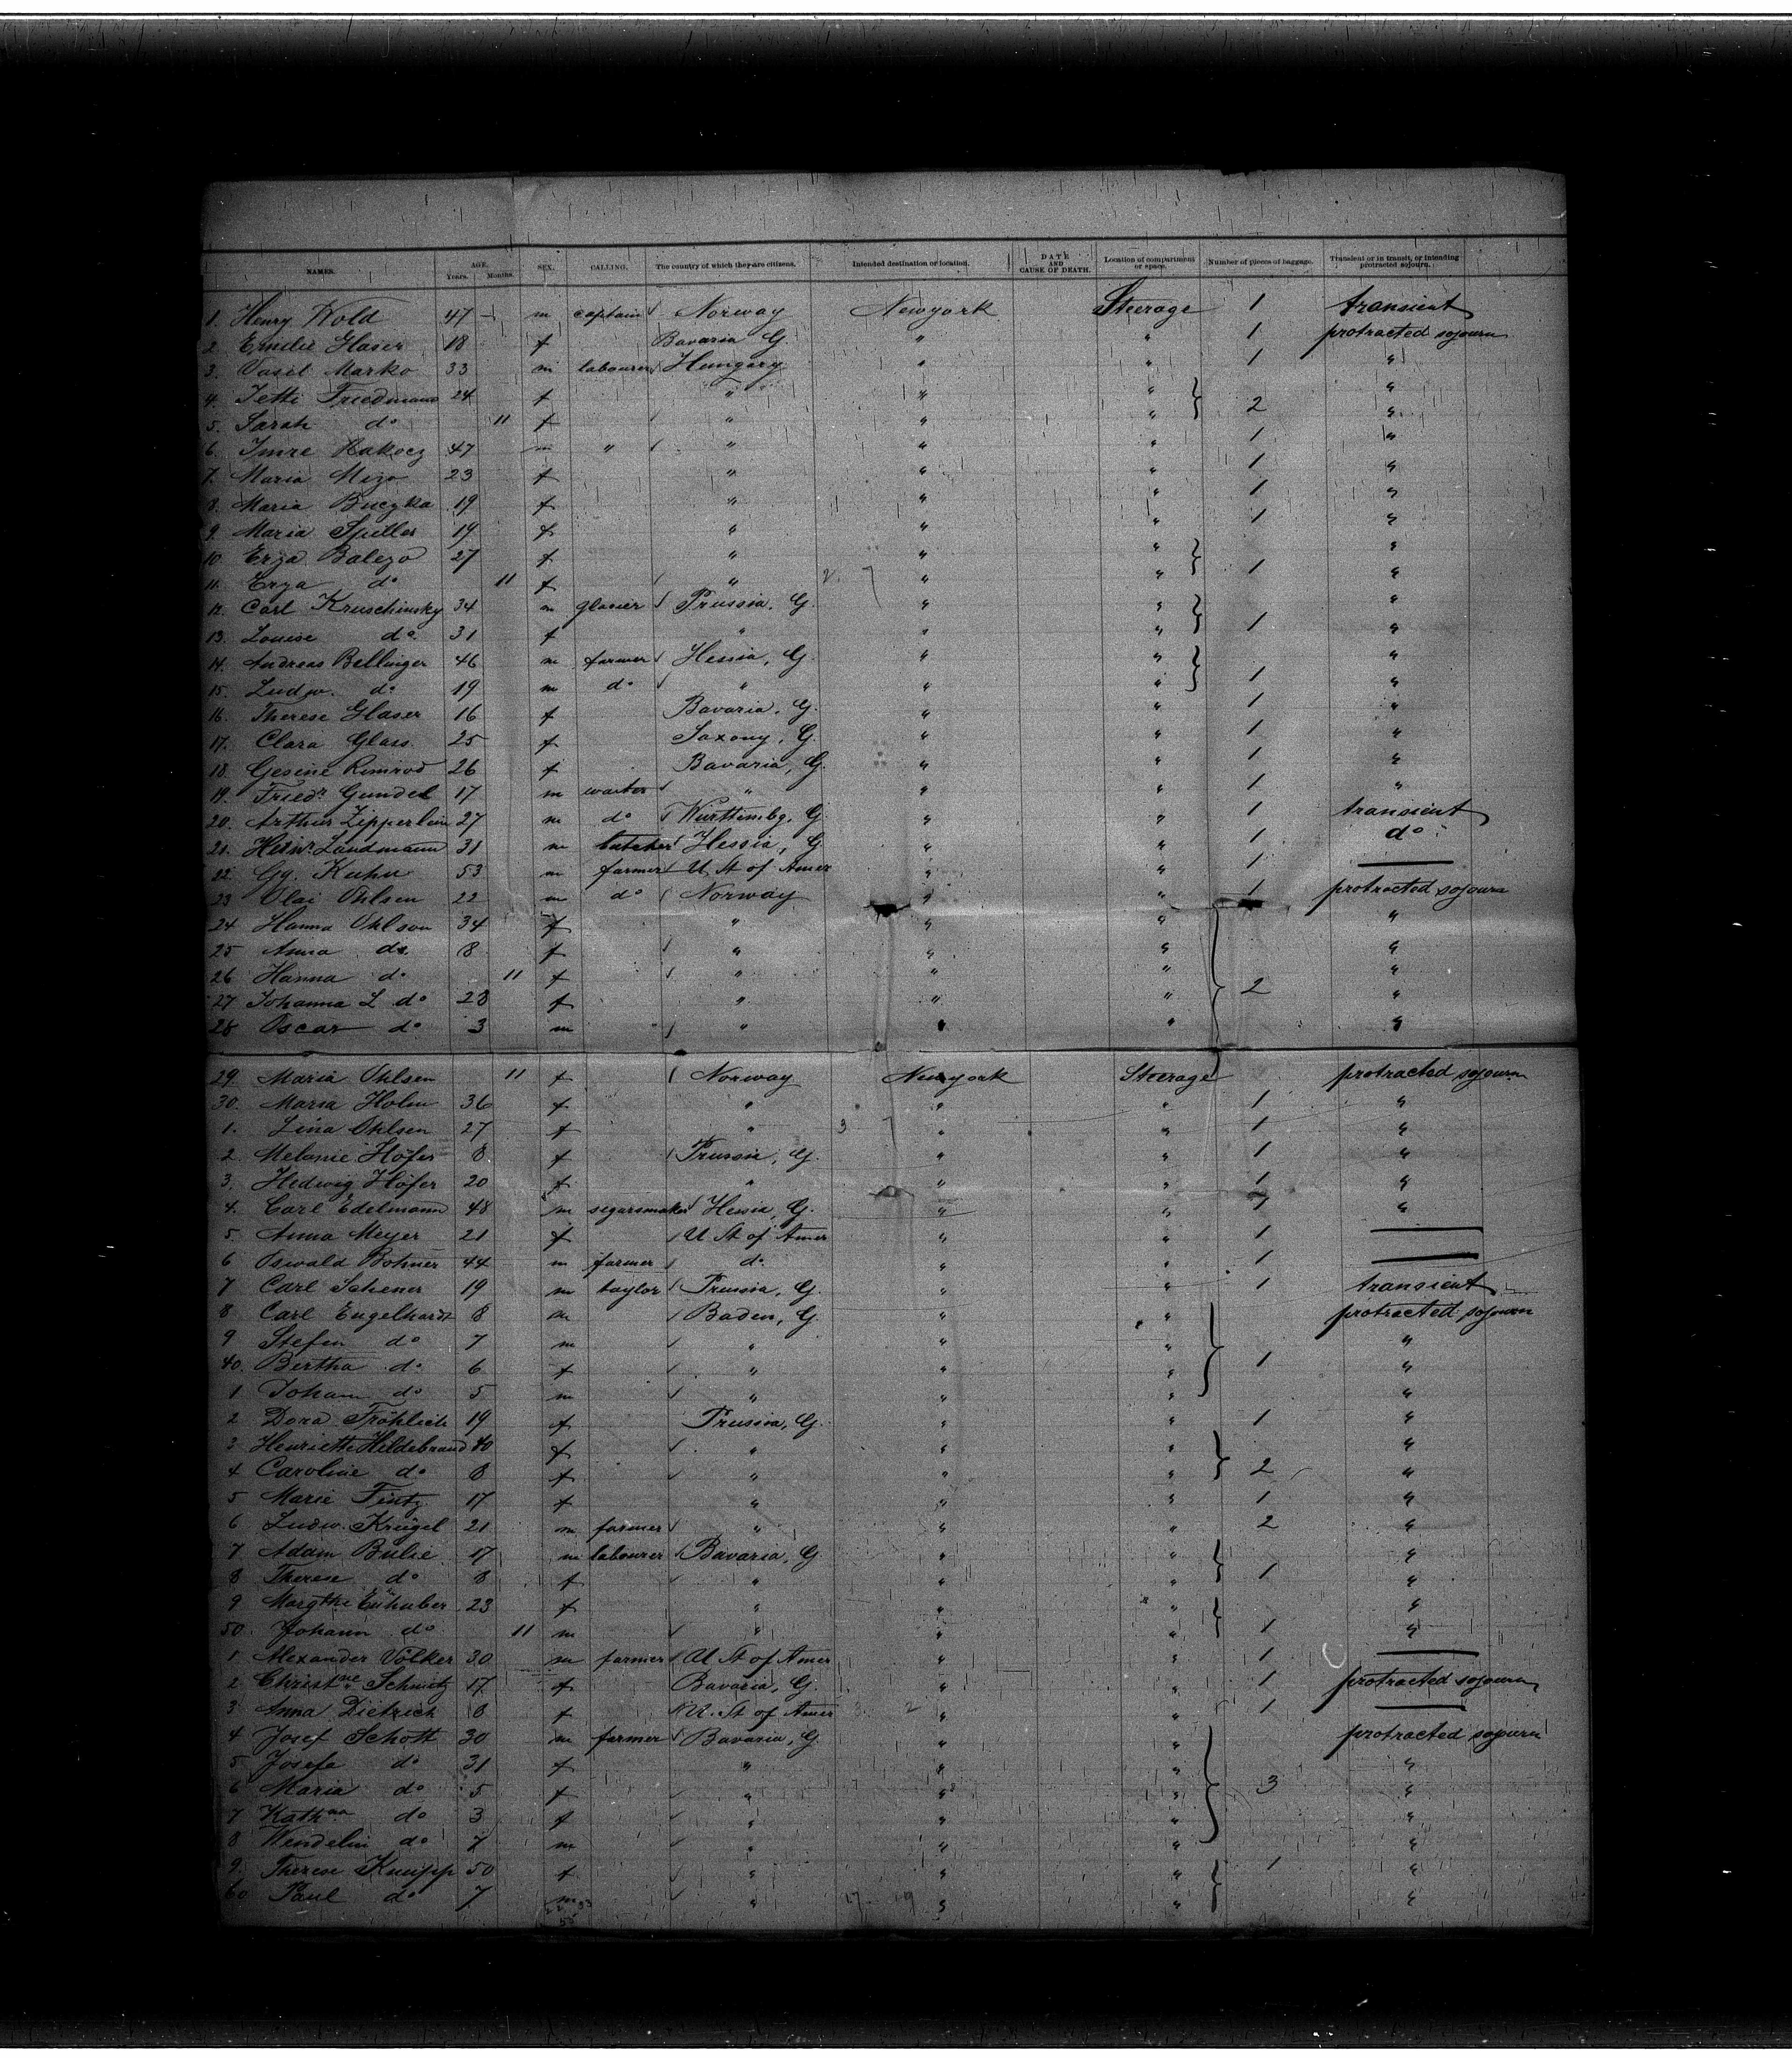 NAMES. AGE. Years. Months. SEX. CALLING. The country of which they are citizens. Intended destination or location. DATE AND CAUSE OF DEATH. Location of compartment or space. Number of pieces of baggage. Transient or in transit, or intending protracted sojourn.
1. Henry Wold 47 - m captain Norway Newyork Steerage 1 transient
2. Emilie Glaser 18 f Bavaria G. " " 1 protracted sojourn
3. Vasil Marko 33 m labourer Hungary " " 1 "
4. Jetti Friedmann 24 f " " " "
5. Sarah do 11 f " " " 2 "
6. Imre Rakocz 47 m " " " " 1 "
7. Maria Mizo 23 f " " " 1 "
8. Maria Buczka 19 f " " " 1 "
9. Maria Spiller 19 f " " " 1 "
10. Erza Balezo 27 f " " " "
11. Erza do 11 f " " " 1 "
12. Carl Kruschinsky 34 m glasier Prussia. G. " " "
13. Louise do. 31 f " " " 1 "
14. Andreas Bellinger 46 m farmer Hessia, G. " " "
15. Ludw. do 19 m do " " " 1 "
16. Therese Glaser 16 f Bavaria, G. " " 1 "
17. Clara Glass. 25 f Saxony, G. " " 1 "
18. Gesine Rimrod 26 f Bavaria, G. " " 1 "
19. Friedr Gundel 17 m waiter " " " 1 "
20. Arthur Zipperlein 27 m do Württembg. G. " " 1 transient
21. Heinr. Landmann 31 m butcher Hessia, G. " " 1 do
22. Gg. Kuhn 53 m farmer U. St of Amer " " 1 —
23 Olai Ohlsen 22 m do Norway " " 1 protracted sojourn
24 Hanna Ohlson 34 f " " " "
25 Anna do. 8 f " " " "
26 Hanna do 11 f " " " "
27 Johanna L do 28 f " " " 2 "
28 Oscar do 3 m " " " "
29 Maria Ohlsen 11 f Norway Newyork Steerage protracted sojourn
30. Maria Holm 36 f " " " 1 "
1. Lina Ohlsen 27 f " " " 1 "
2. Melanie Höfer 8 f Prussia, G. " " 1 "
3. Hedwig Höfer 20 f " " " 1 "
4. Carl Edelmann 48 m segarsmaker Hessia, G. " " 1 "
5. Anna Meyer 21 f U St of Amer " " 1 —
6 Oswald Bohner 44 m farmer do. " " 1 —
7 Carl Schener 19 m taylor Prussia, G. " " 1 transient
8 Carl Engelhardt 8 m Baden, G " " protracted sojourn
9 Stefan do 7 m " " " "
40. Bertha do 6 f " " " 1 "
1 Johann do 5 m " " " "
2 Dora Fröhlich 19 f Prussia, G. " " 1 "
3 Henriette Hildebrand 40 f " " " "
4 Caroline do 8 f " " " 2 "
5 Marie Tintz 17 f " " " 1 "
6 Ludw. Krügel 21 m farmer " " " 2 "
7 Adam Bulie 17 m labourer Bavaria, G " " "
8 Therese do 8 f " " " 1 "
9 23 f " " " "
50. Johann do 11 m " " " 1 "
1 Alexander Völker 30 m farmer U St of Amer " " 1 —
2 Christne Schmitz 17 f Bavaria, G. " " 1 protracted sojourn
3 Anna Dietrich 8 f U. St of Amer " " 1 —
4 Josef Schott 30 m farmer Bavaria, G " " protracted sojourn
5 Josefa do 31 f " " " "
6 Maria do 5 f " " " 3 "
7 Kathna do 3 f " " " "
8 Wendelin do 7 m " " " "
9. Therese Kneipp 50 f " " " 1 "
60 Paul do 7 m " " " "